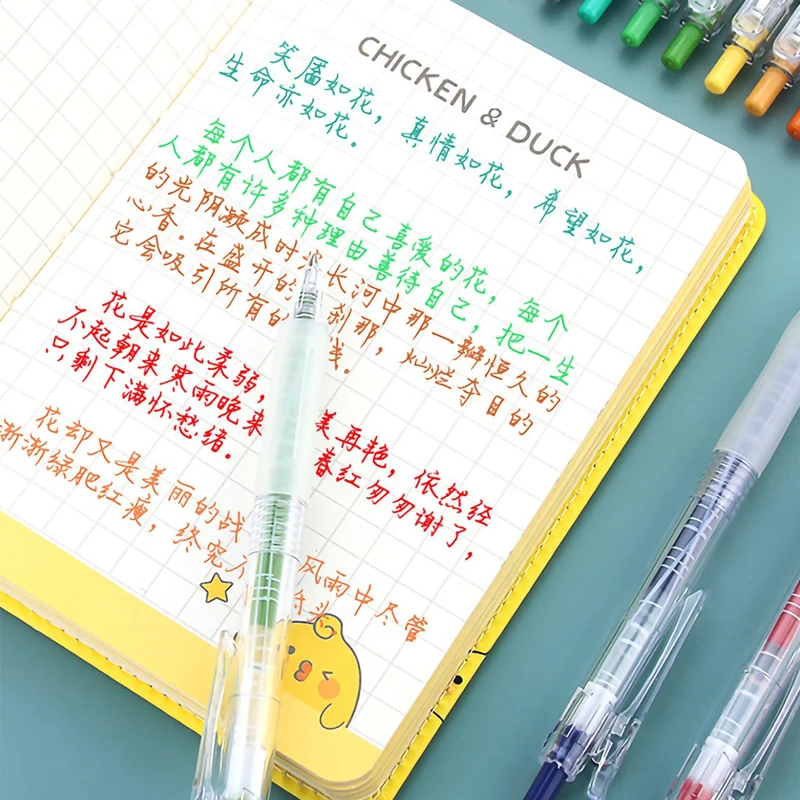 CHICKEN & DUCK
笑靥如花，真情如花，希望如花，
生命亦如花。
每个人都有自己喜爱的花，每个
人都有许多种理由善待自己，把一生
的光阴凝成时 长河中那一瓣恒久的
心香。在盛开的 刹那，灿烂夺目的
它会吸引所有的 线。
花是如此柔弱， 美再艳，依然经
不起朝来寒雨晚来 春红匆匆谢了，
只剩下满怀愁绪。
花却又是美丽的战 风雨中尽管
渐渐绿肥红瘦，终究 头